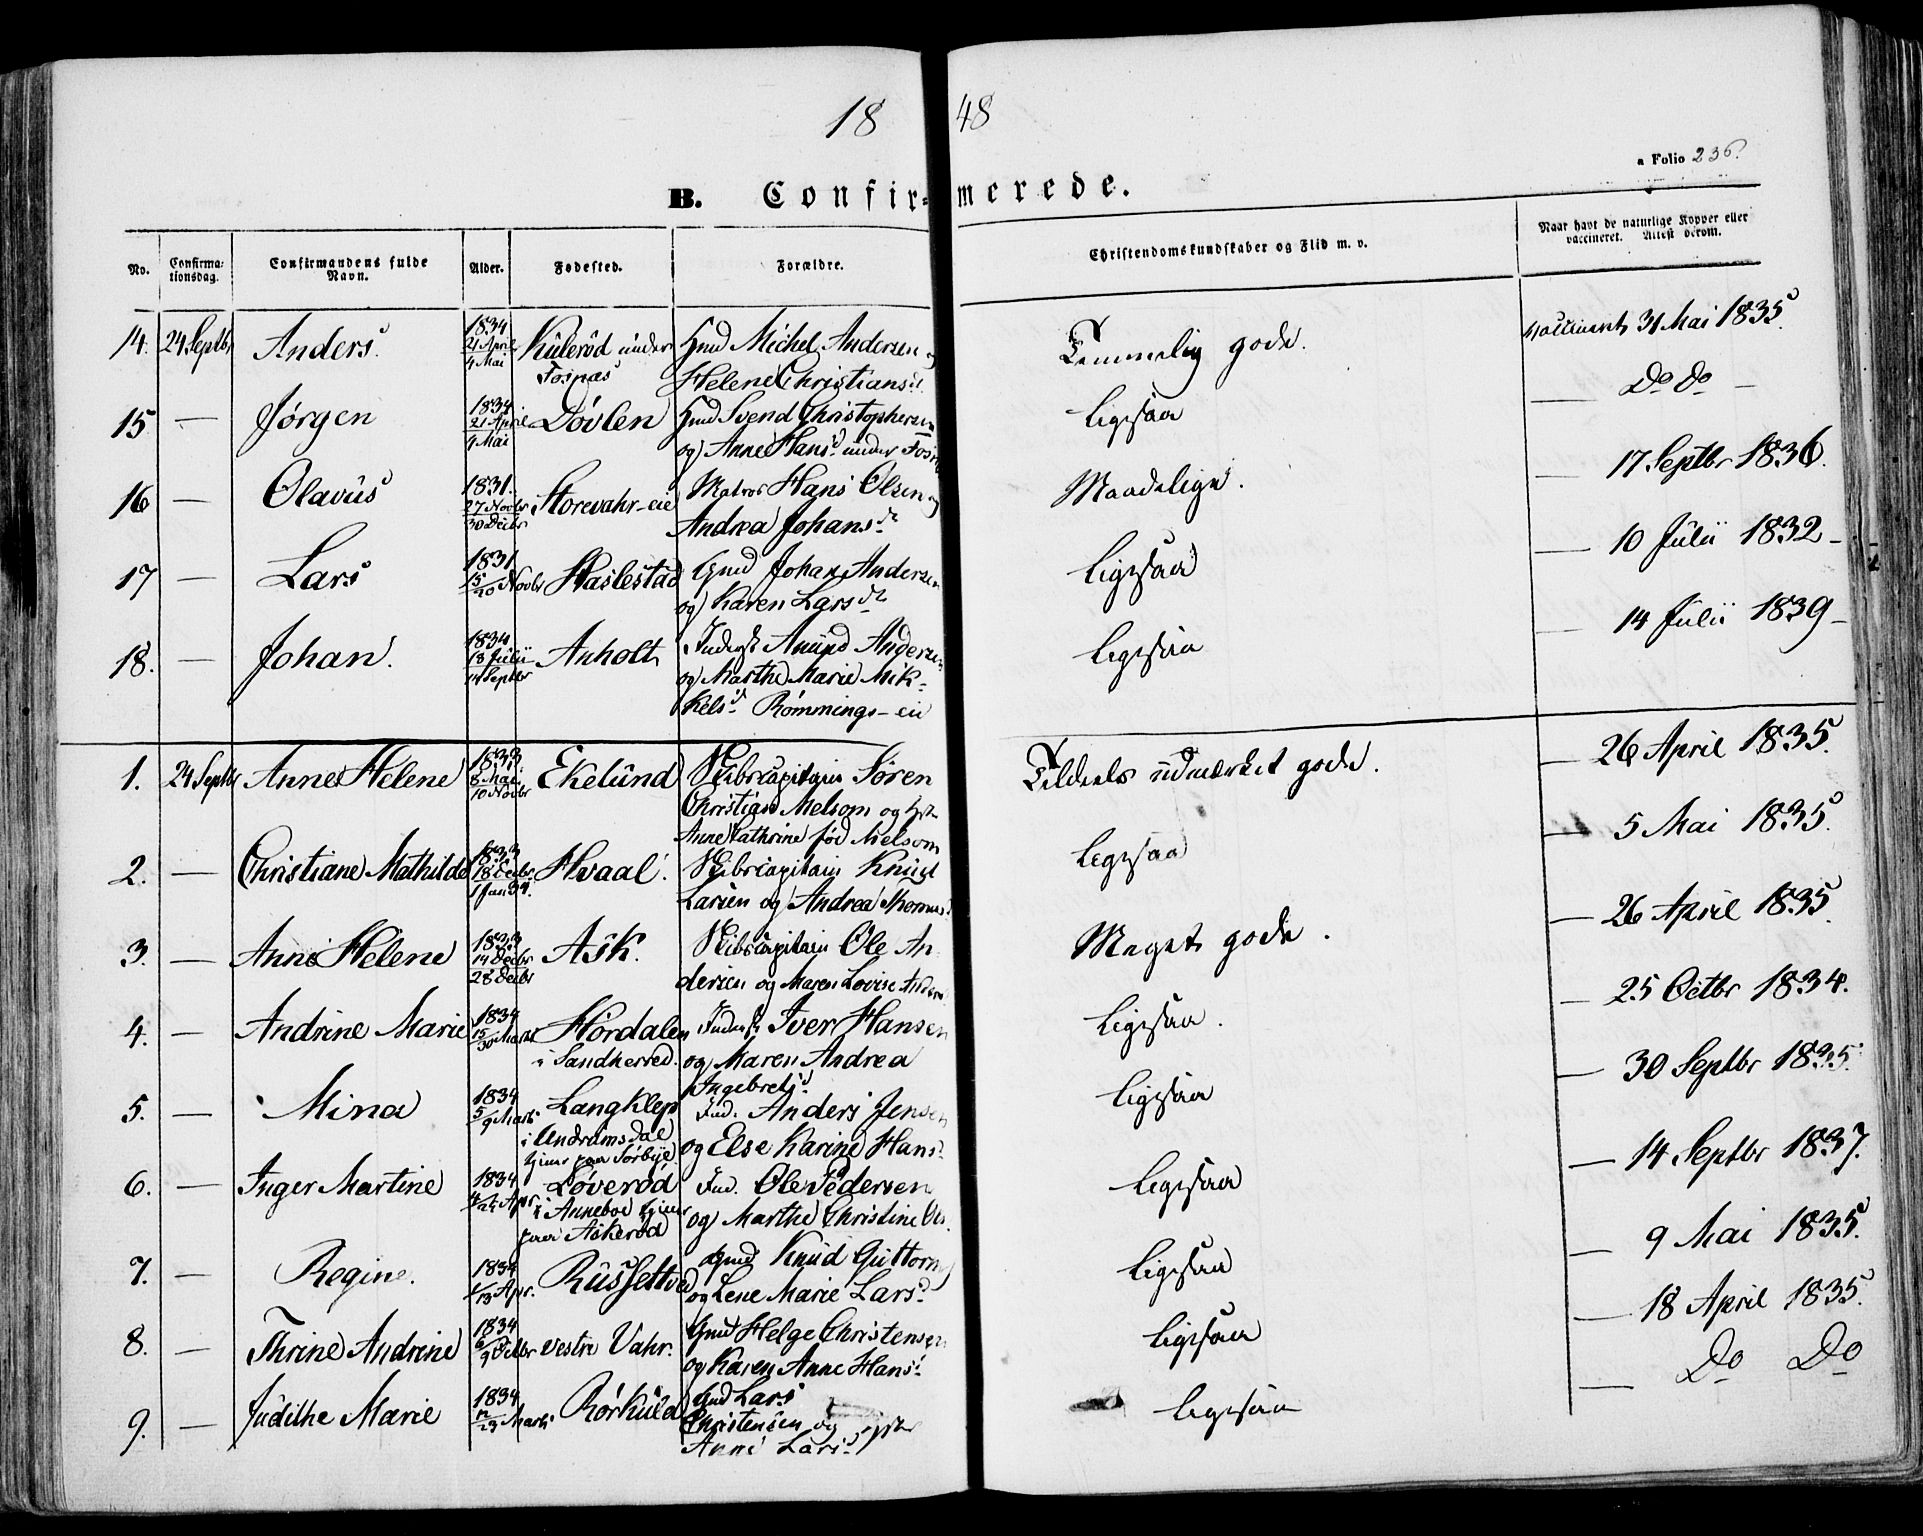 18 48
a Folio 236.
B. Confir= merede.
No. Confirma=tionsdag. Confirmandens fulde Navn. Alder. Fødested. Forældre. Christendomskundskaber og Flid m. v. Naar havt de naturlige Kopper eller vaccineret. Attest derom.
14. 24 Septbr Anders. 1834 21 April 4 Mai Kulerød under Fosnæs Gmd Michel Andersen og Helene Christiansd. Temmelig gode. vaccineret 31 Mai 1835.
15 — Jørgen 1834 21 April 4 Mai Døvlen Gmd Svend Christophersen og Anne Hansd. under ligesaa — Do do —
16 — Olavus 1831. 27 Novbr 30 Decbr Storevahr-eie Matros Hans Olsen og Andrea Johansdr Maadelige. — 17 Septbr 1836.
17 — Lars 1831 15/20 Novbr Haslestad Gmd Johan Andersen og Karen Larsdr ligesaa — 10 Julii 1832 —
18. — Johan. 1834 13 Julii 14 Septbr Anholt Inderst Anund Andersen og Marthe Marie Mik=kelsd. Rømmings-eie ligesaa — 14 Julii 1839 —
1. 24 Septbr Anne Helene 1833 8 Mai 10 Novbr Ekelund Skibscapitain Søren Christian Melsom og Hst Anne Cathrine fød Melsom Tildeels udmærket gode. — 26 April 1835.
2. — Christiane Mathilde 1833 18 Decbr 1 Jan 34. Hvaal. Skibscapitain Knud Larsen og Andrea ligesaa — 5 Mai 1835.
3. — Anne Helene 1833 14 Decbr 28 Decbr Ask. Skibscapitain Ole An dersen og Maren Lovise Meget gode. — 26 April 1835.
4. — Andrine Marie 1834 15/30 Marts Hørdalen i Sandherred. Inderst Iver Hansen og Maren Andrea Ingebretsd. ligesaa. — 25 Octbr 1834.
5. — Mina 1834 5/9 Marts Langklep i Andramsdal tjener paa Sørbye Ind. Anders Jensen og Else Karine Hansd. ligesaa — 30 Septbr 1835.
6. — Inger Martine 1834 Apr. Løverød i Anneboe tjener paa Askerød Ind. Ole Pedersen og Marthe Christine Ols. ligesaa — 14 Septbr 1837.
7. — Regine. 1834 Apr. Russeltved Gmd Knud Guttorms og Lene Marie Larsd. ligesaa — 9 Mai 1835.
8. — Thrine Andrine 1834 6/9 Vestre Vahr. Gmd Helge Christensen og Karen Anne Hansd. ligesaa — 18 April 1835.
9. — Judithe Marie 1834 Marts Rørkuld Gmd Lars Christensen og Hst Anne Larsd. ligesaa — Do Do